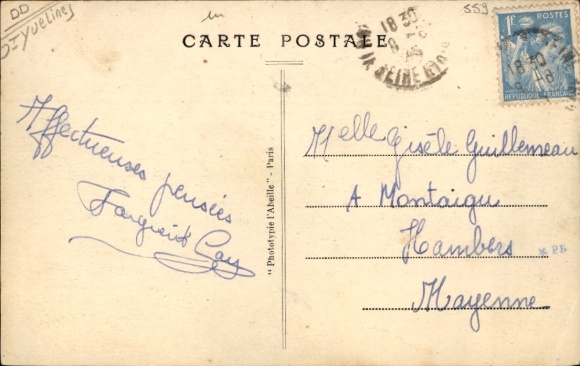 DD
Yvelines
559
CARTE POSTALE
18 30
SEINE
1F
POSTES
RÉPUBLIQUE FRANÇAISE
Affectueuses pensées
"Phototypie l'Abeille" - Paris
Melle Gisèle Guillemeau
A Montaigu
Hambers
Mayenne